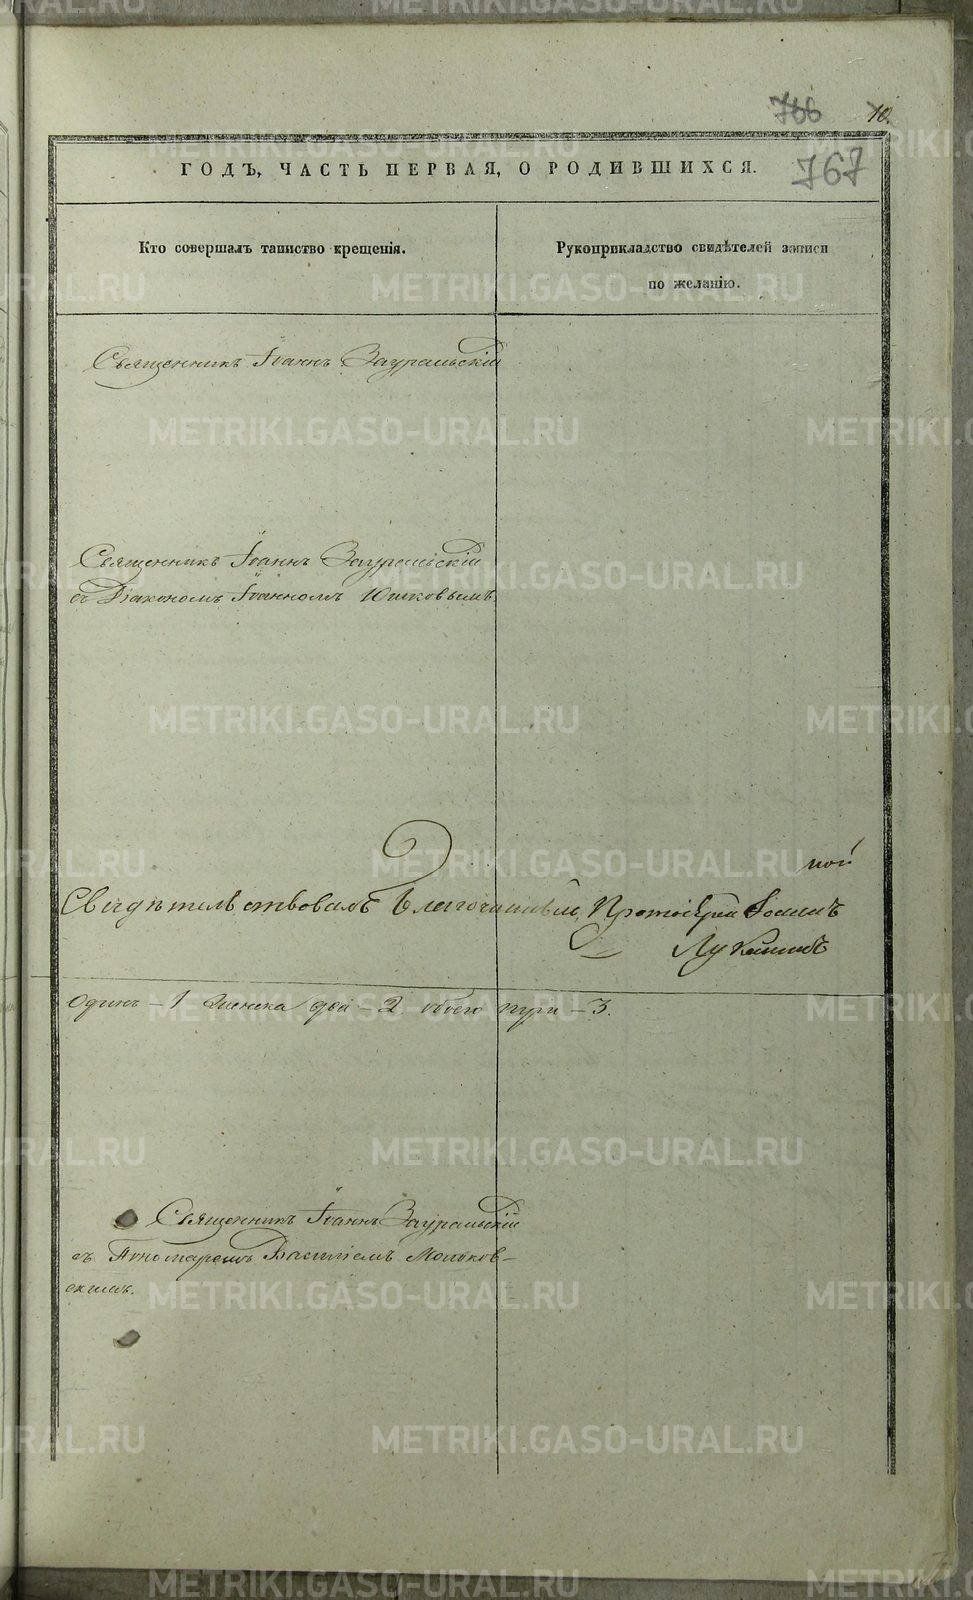 766 10.
ГОДЪ, ЧАСТЬ ПЕРВАЯ, О РОДИВШИХСЯ. 767
Кто совершалъ таинство крещенія.
Рукоприкладство свидѣтелей записи
по желанію.
Священникъ Іоаннъ Зауральскій
Священникъ Іоаннъ Зауральскій
съ Діакономъ Іоанномъ Юшковымъ.
Свидѣтельствовалъ Благочинный, Протоіерей Іоаннъ
Лукинъ
одинъ – 1 женска два – 2 обоего пола – 3.
Священникъ Іоаннъ Зауральскій
съ Пономаремъ Василіемъ Моньков-
скимъ.
METRIKI.GASO-URAL.RU